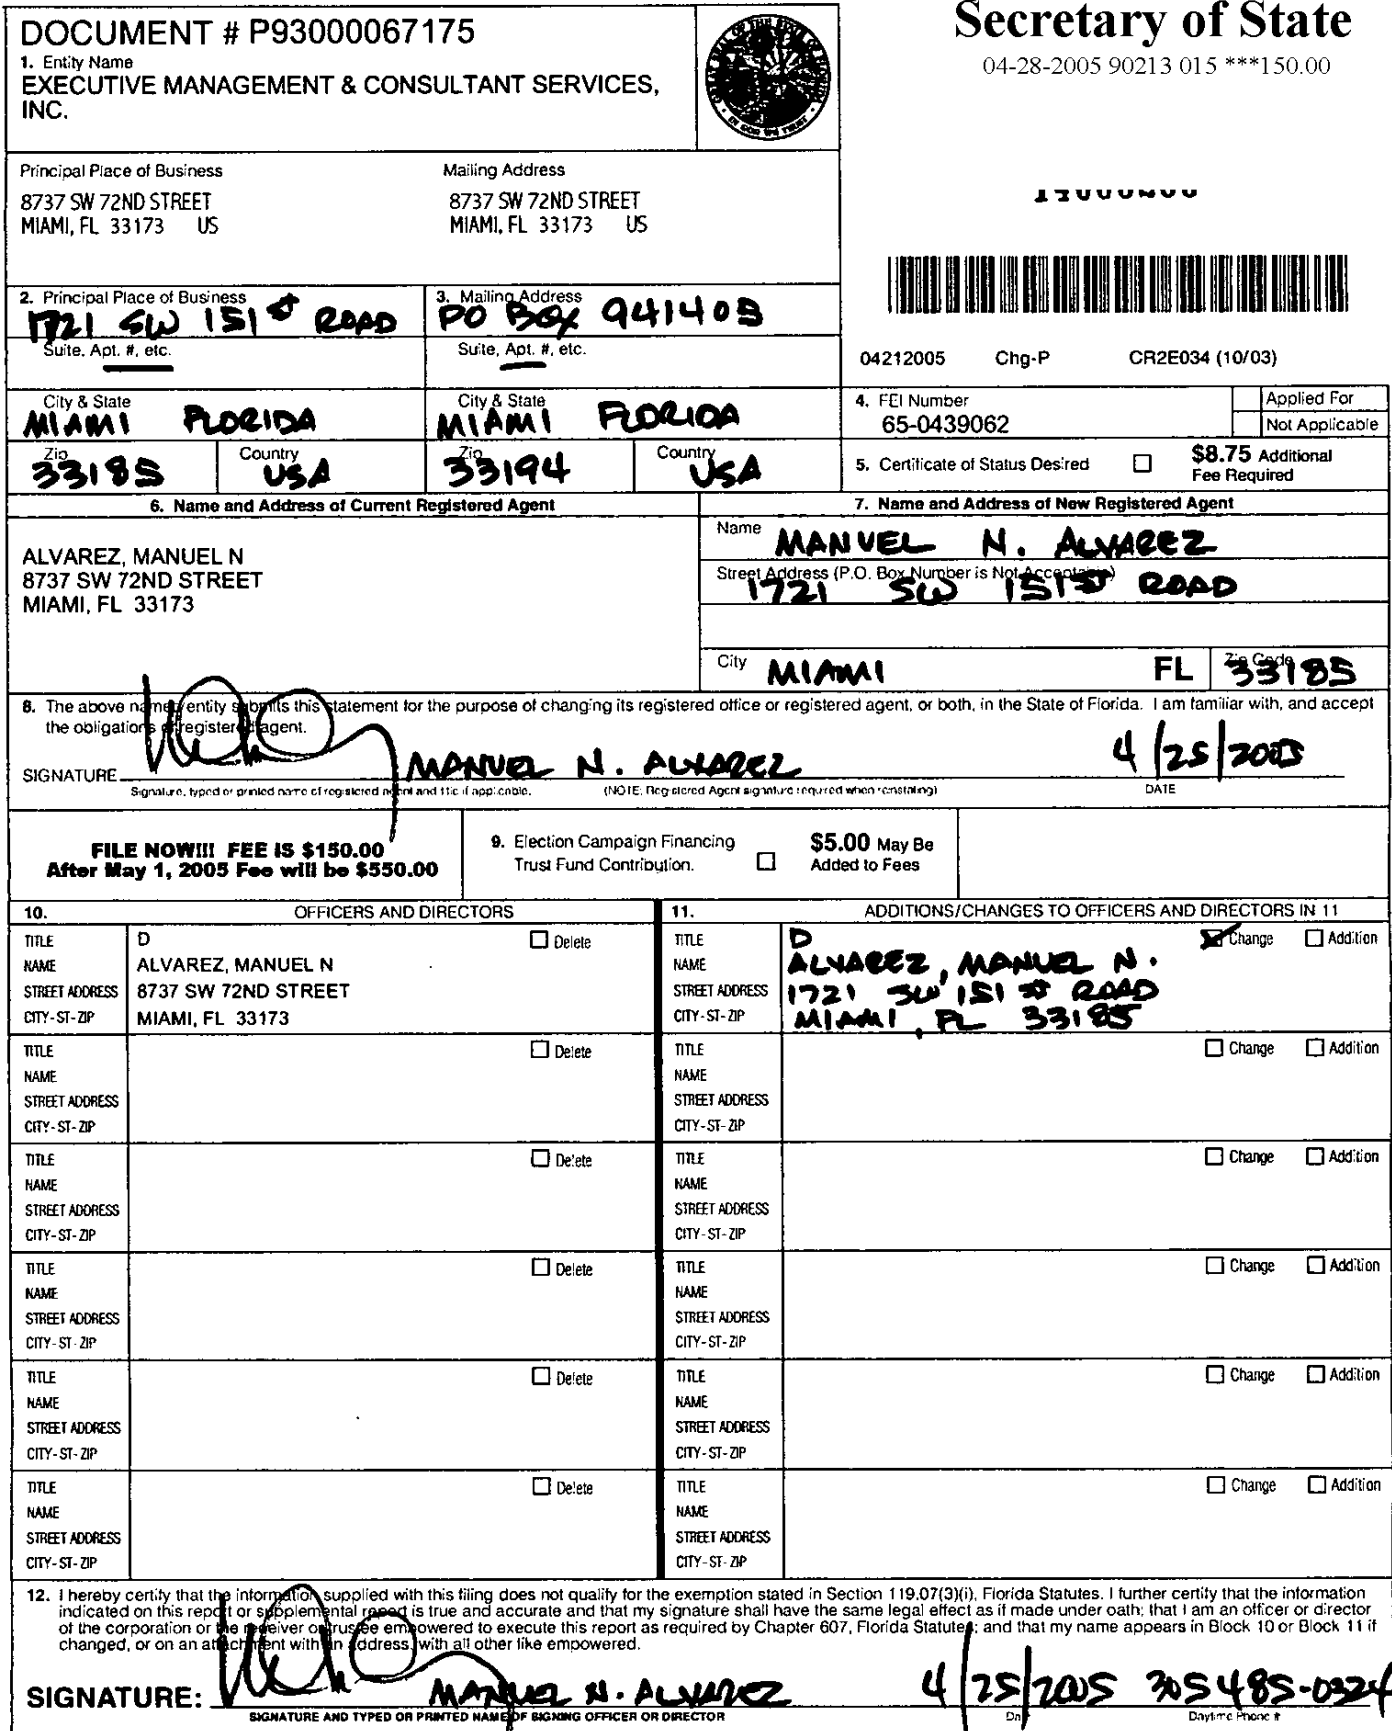 DOCUMENT # P93000067175
1. Entity Name
EXECUTIVE MANAGEMENT & CONSULTANT SERVICES,
INC.
Secretary of State
04-28-2005 90213 015 ***150.00
Principal Place of Business
8737 SW 72ND STREET
MIAMI, FL 33173 US
Mailing Address
8737 SW 72ND STREET
MIAMI, FL 33173 US
2. Principal Place of Business
1721 SW 151 ST ROAD
Suite, Apt. #, etc.
3. Mailing Address
PO BOX 941403
Suite, Apt. #, etc.
04212005 Chg-P CR2E034 (10/03)
City & State
MIAMI FLORIDA
City & State
MIAMI FLORIDA
Zip
33185
Country
USA
Zip
33194
Country
USA
4. FEI Number
65-0439062
Applied For
Not Applicable
5. Certificate of Status Desired
$8.75 Additional
Fee Required
6. Name and Address of Current Registered Agent
ALVAREZ, MANUEL N
8737 SW 72ND STREET
MIAMI, FL 33173
7. Name and Address of New Registered Agent
Name MANUEL N. ALVAREZ
Street Address (P.O. Box Number is Not Acceptable)
1721 SW 151 ST ROAD
City MIAMI FL Zip Code 33185
8. The above named entity submits this statement for the purpose of changing its registered office or registered agent, or both, in the State of Florida. I am familiar with, and accept
the obligations of registered agent.
SIGNATURE MANUEL N. ALVAREZ 4/25/2005
Signature, typed or printed name of registered agent and title if applicable. (NOTE: Registered Agent signature required when reinstating) DATE
FILE NOW!!! FEE IS $150.00
After May 1, 2005 Fee will be $550.00
9. Election Campaign Financing
Trust Fund Contribution.
$5.00 May Be
Added to Fees
10. OFFICERS AND DIRECTORS
TITLE D Delete
NAME ALVAREZ, MANUEL N
STREET ADDRESS 8737 SW 72ND STREET
CITY-ST-ZIP MIAMI, FL 33173
TITLE Delete
NAME
STREET ADDRESS
CITY-ST-ZIP
TITLE Delete
NAME
STREET ADDRESS
CITY-ST-ZIP
TITLE Delete
NAME
STREET ADDRESS
CITY-ST-ZIP
TITLE Delete
NAME
STREET ADDRESS
CITY-ST-ZIP
TITLE Delete
NAME
STREET ADDRESS
CITY-ST-ZIP
11. ADDITIONS/CHANGES TO OFFICERS AND DIRECTORS IN 11
TITLE D Change Addition
NAME ALVAREZ, MANUEL N.
STREET ADDRESS 1721 SW 151 ST ROAD
CITY-ST-ZIP MIAMI, FL 33185
TITLE Change Addition
NAME
STREET ADDRESS
CITY-ST-ZIP
TITLE Change Addition
NAME
STREET ADDRESS
CITY-ST-ZIP
TITLE Change Addition
NAME
STREET ADDRESS
CITY-ST-ZIP
TITLE Change Addition
NAME
STREET ADDRESS
CITY-ST-ZIP
TITLE Change Addition
NAME
STREET ADDRESS
CITY-ST-ZIP
12. I hereby certify that the information supplied with this filing does not qualify for the exemption stated in Section 119.07(3)(i), Florida Statutes. I further certify that the information
indicated on this report or supplemental report is true and accurate and that my signature shall have the same legal effect as if made under oath; that I am an officer or director
of the corporation or the receiver or trustee empowered to execute this report as required by Chapter 607, Florida Statutes; and that my name appears in Block 10 or Block 11 if
changed, or on an attachment with an address, with all other like empowered.
SIGNATURE: MANUEL N. ALVAREZ 4/25/2005 305 485-0324
SIGNATURE AND TYPED OR PRINTED NAME OF SIGNING OFFICER OR DIRECTOR Daytime Phone #